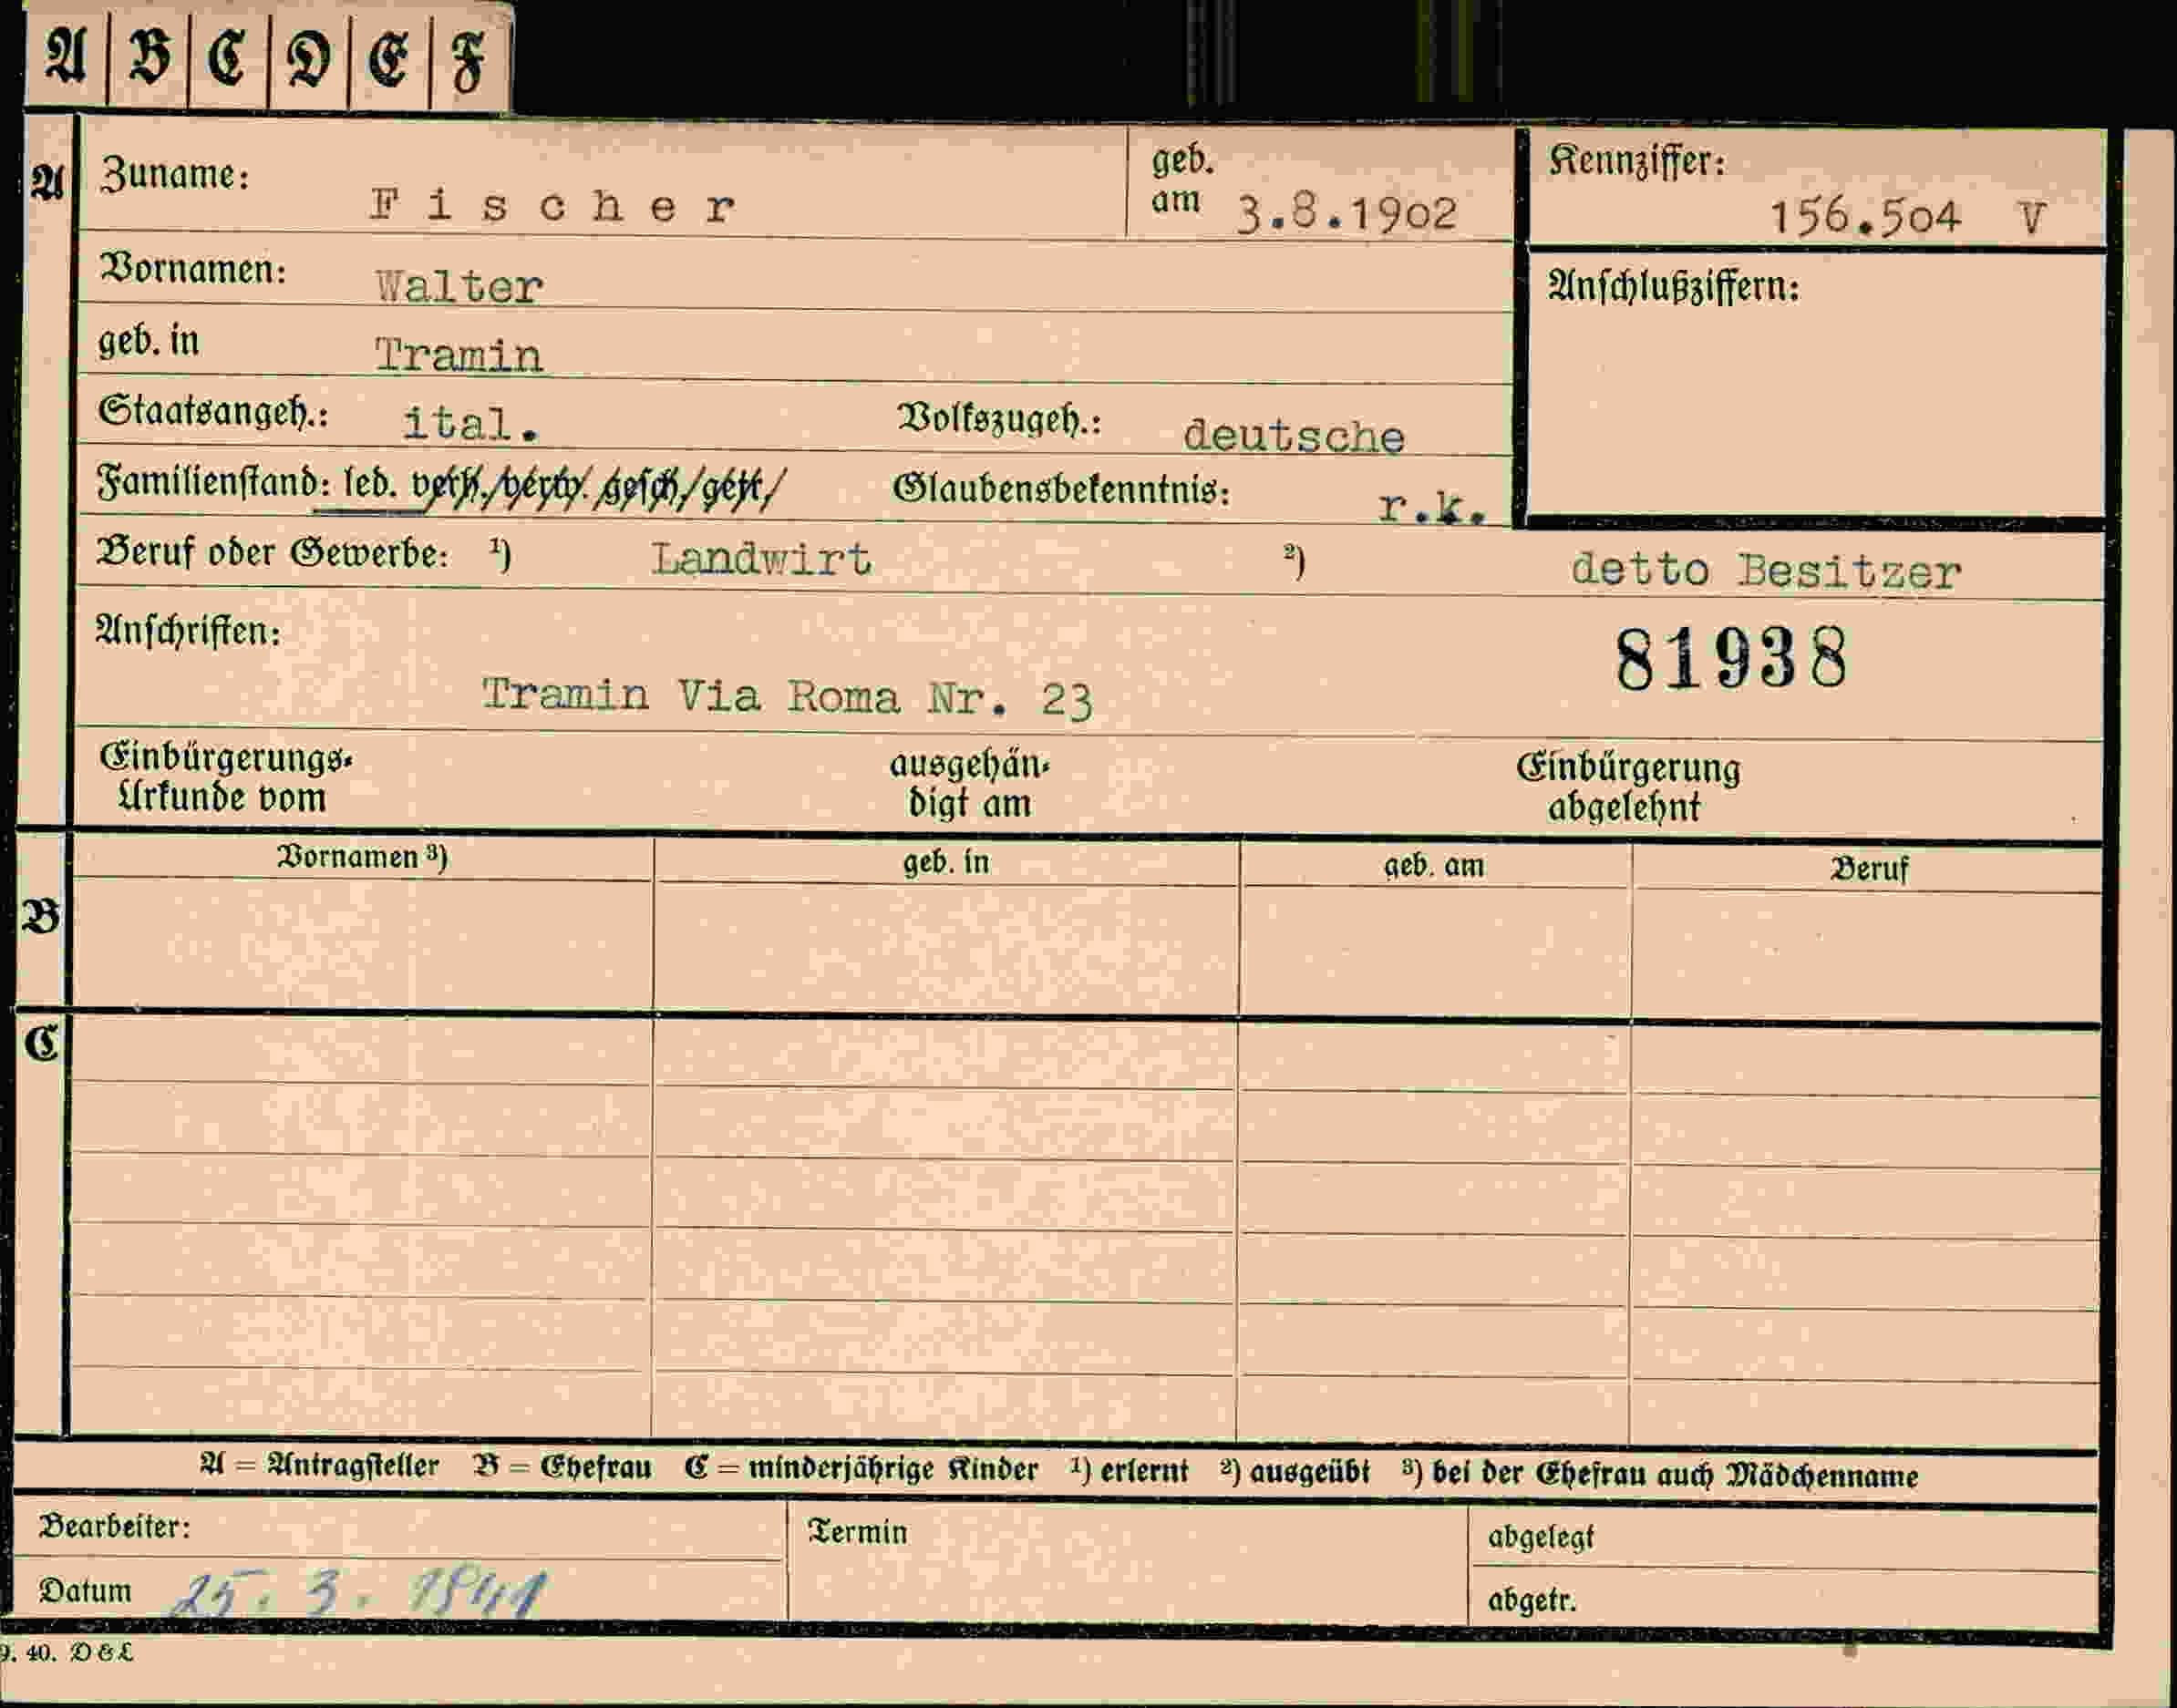 A B C D E F
A Zuname: Fischer geb. am 3.8.1902 Kennziffer: 156.504 V
Vornamen: Walter Anschlußziffern:
geb. in Tramin
Staatsangeh.: ital. Volkszugeh.: deutsche
Familienstand: led. verh./verw. gesch./getr. Glaubensbekenntnis: r.k.
Beruf oder Gewerbe: ¹) Landwirt ²) detto Besitzer
Anschriften: 81938
Tramin Via Roma Nr. 23
Einbürgerungs- ausgehän- Einbürgerung
Urkunde vom digt am abgelehnt
Vornamen ³) geb. in geb. am Beruf
B
C
A = Antragsteller B = Ehefrau C = minderjährige Kinder ¹) erlernt ²) ausgeübt ³) bei der Ehefrau auch Mädchenname
Bearbeiter: Termin abgelegt
Datum 25. 3. 1941 abgetr.
9. 40. D & L